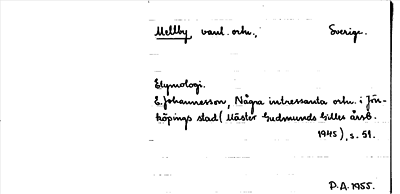 Mellby, vanl. ortn., Sverige.
Etymologi.
E. Johannesson, Några intressanta ortn. i Jön-
köpings stad (Mäster Gudmunds Gilles årsb.
1945), s. 51.
P.A. 1955.